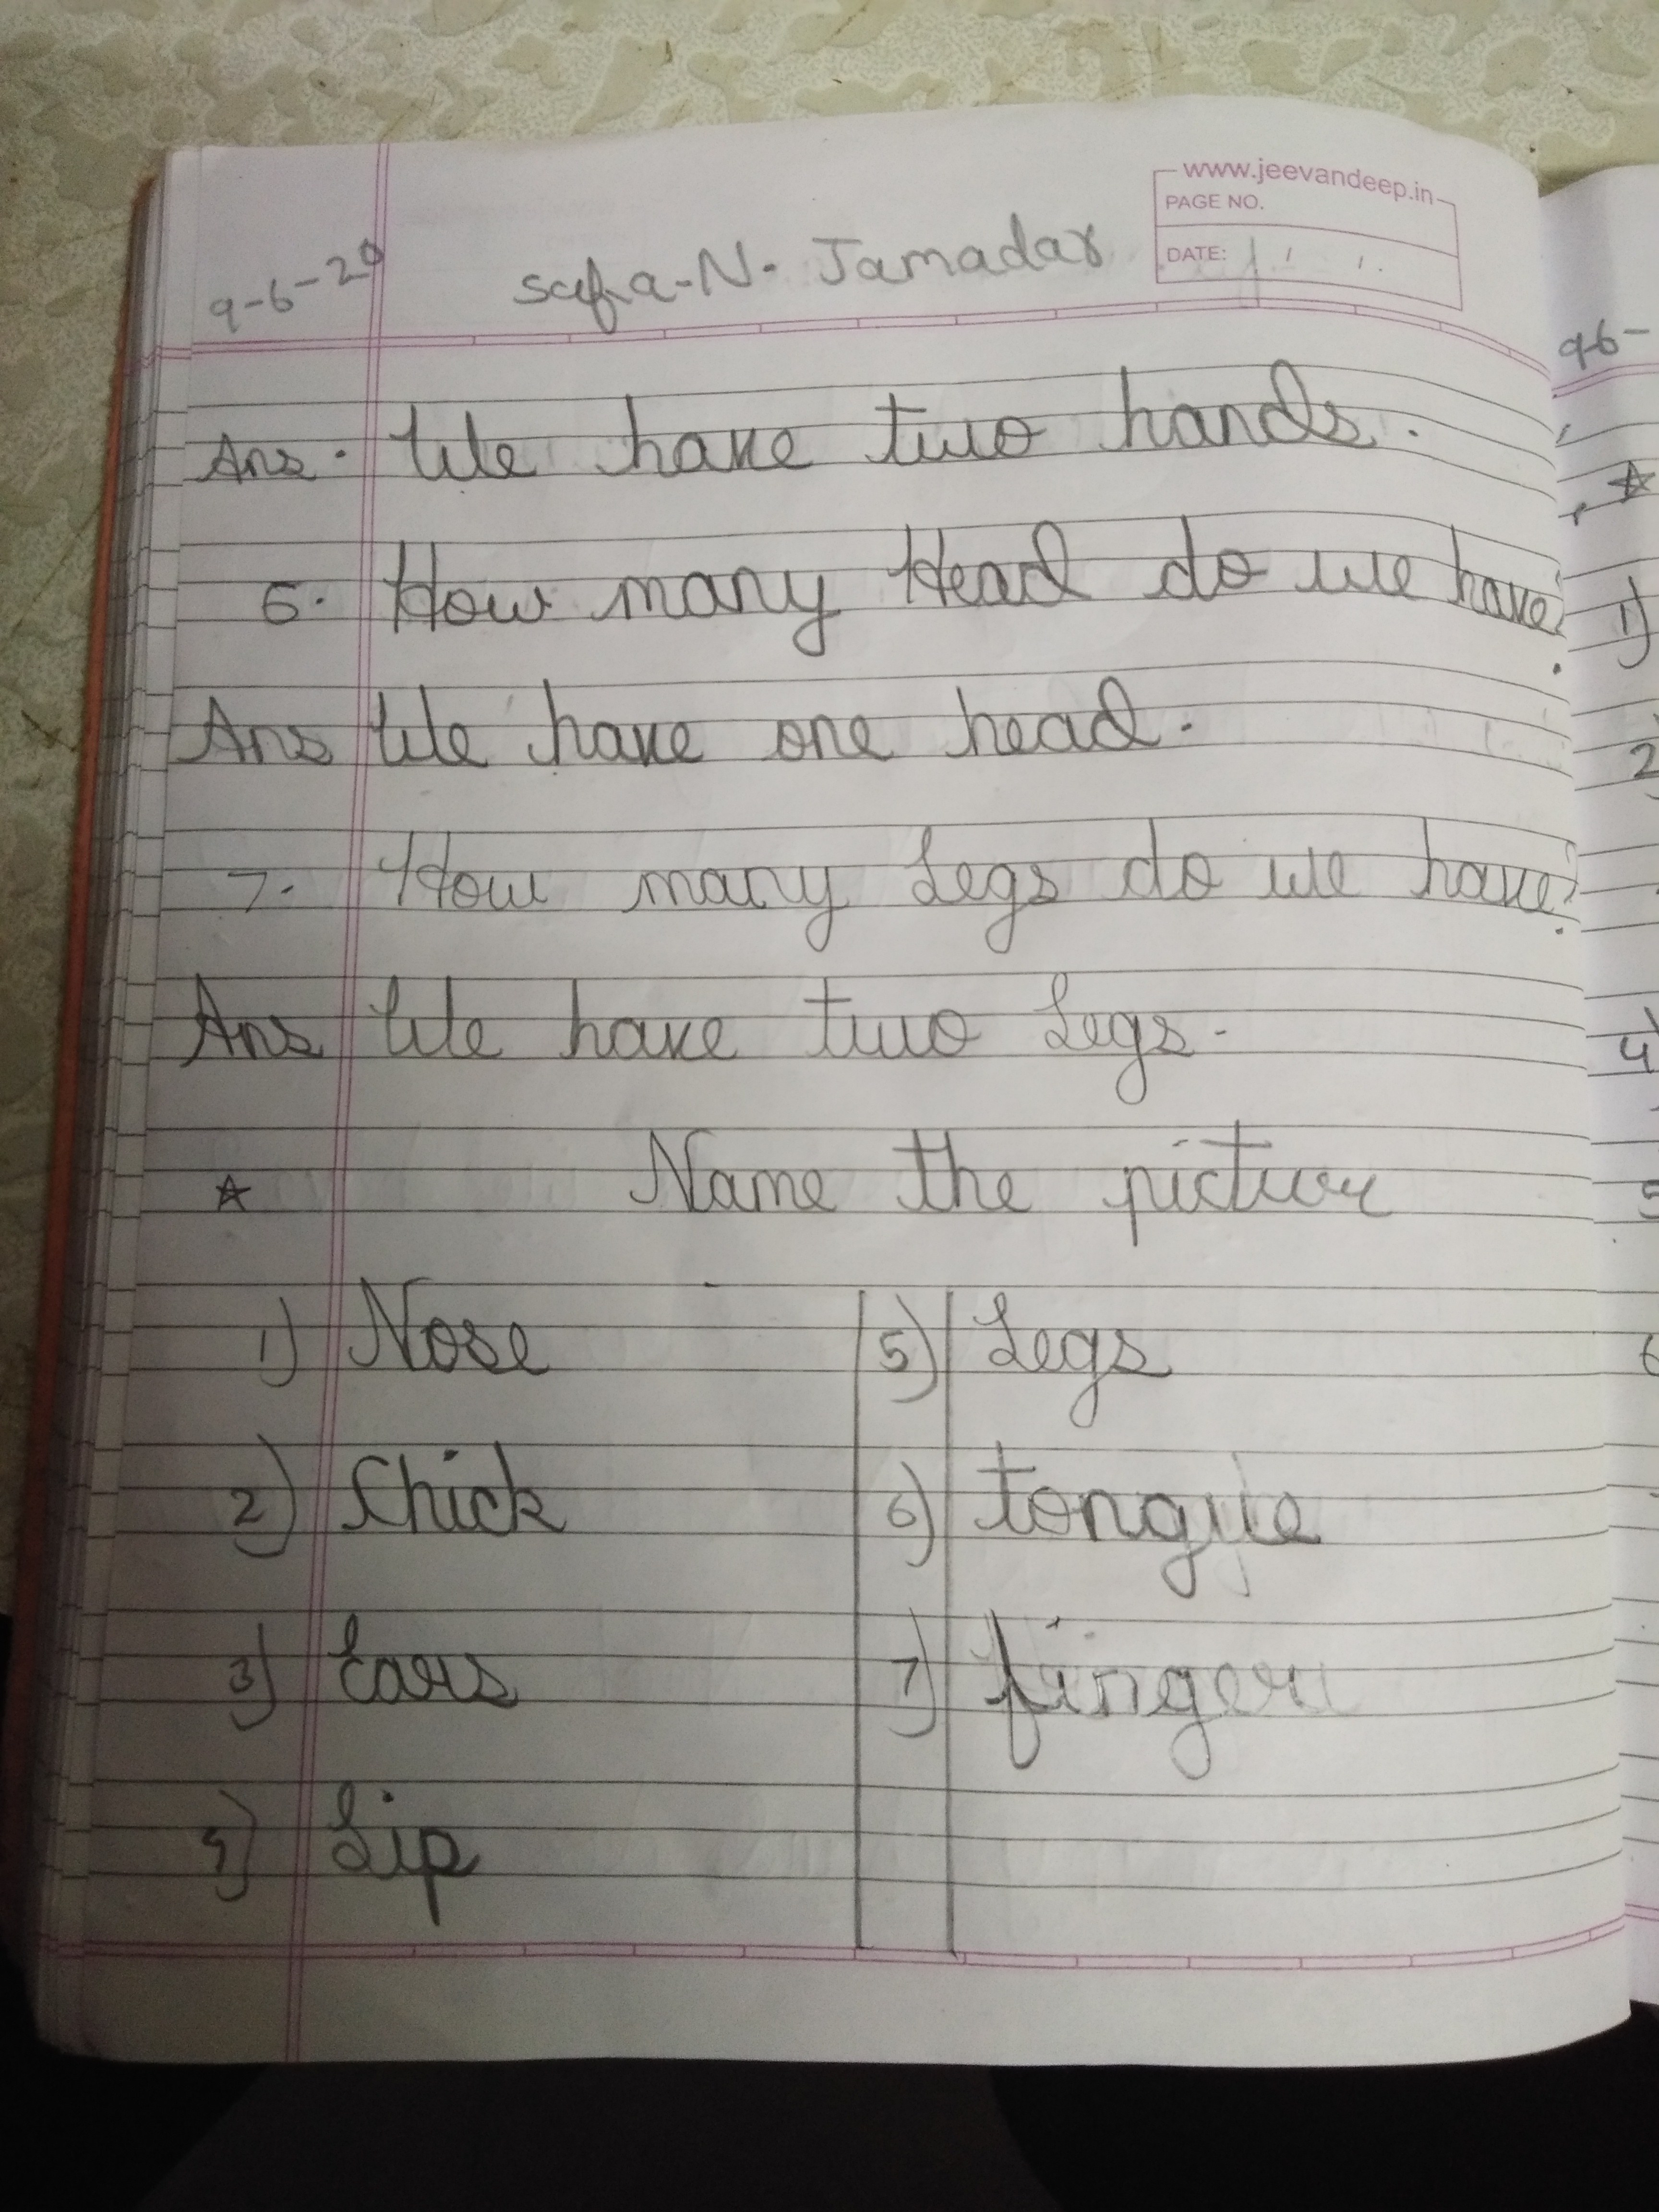 www.jeevandeep.in
PAGE NO.
DATE: / / .
9-6-20 safa-N. Jamadar
Ans. We have two hands.
6. How many Head do we have?
Ans We have one head.
7. How many Legs do we have?
Ans We have two Legs.
☆ Name the picture
1) Nose 5) Legs
2) Chick 6) tongue
3) Ears 7) finger
4) Lip
96-
☆
1)
2)
4)
5
6